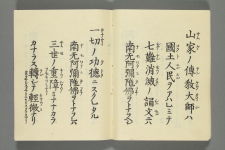 山家ノ傳教大師ハ
國土人民ヲアハレミテ
七難消滅ノ誦文ニハ
南無阿彌陀佛ヲトナフヘシ
一切ノ功德ニスクレタル
南無阿彌陀佛ヲトナフレハ
三世ノ重障ミナナカラ
カナラス轉シテ輕微ナリ